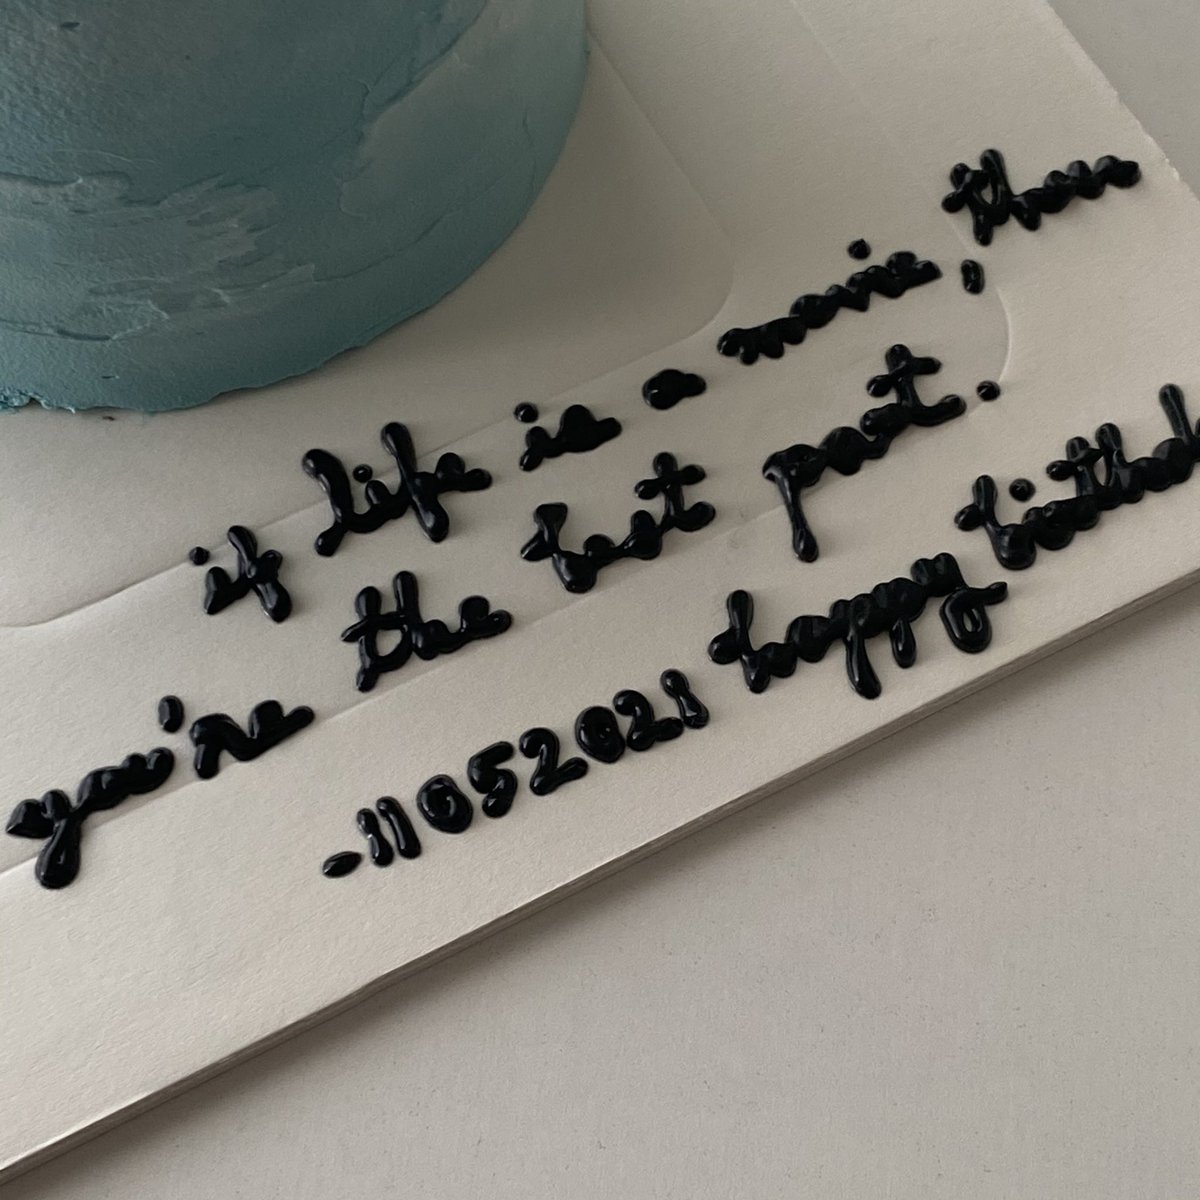 if life is a movie, then
you're the best part.
-11052021 happy birthd